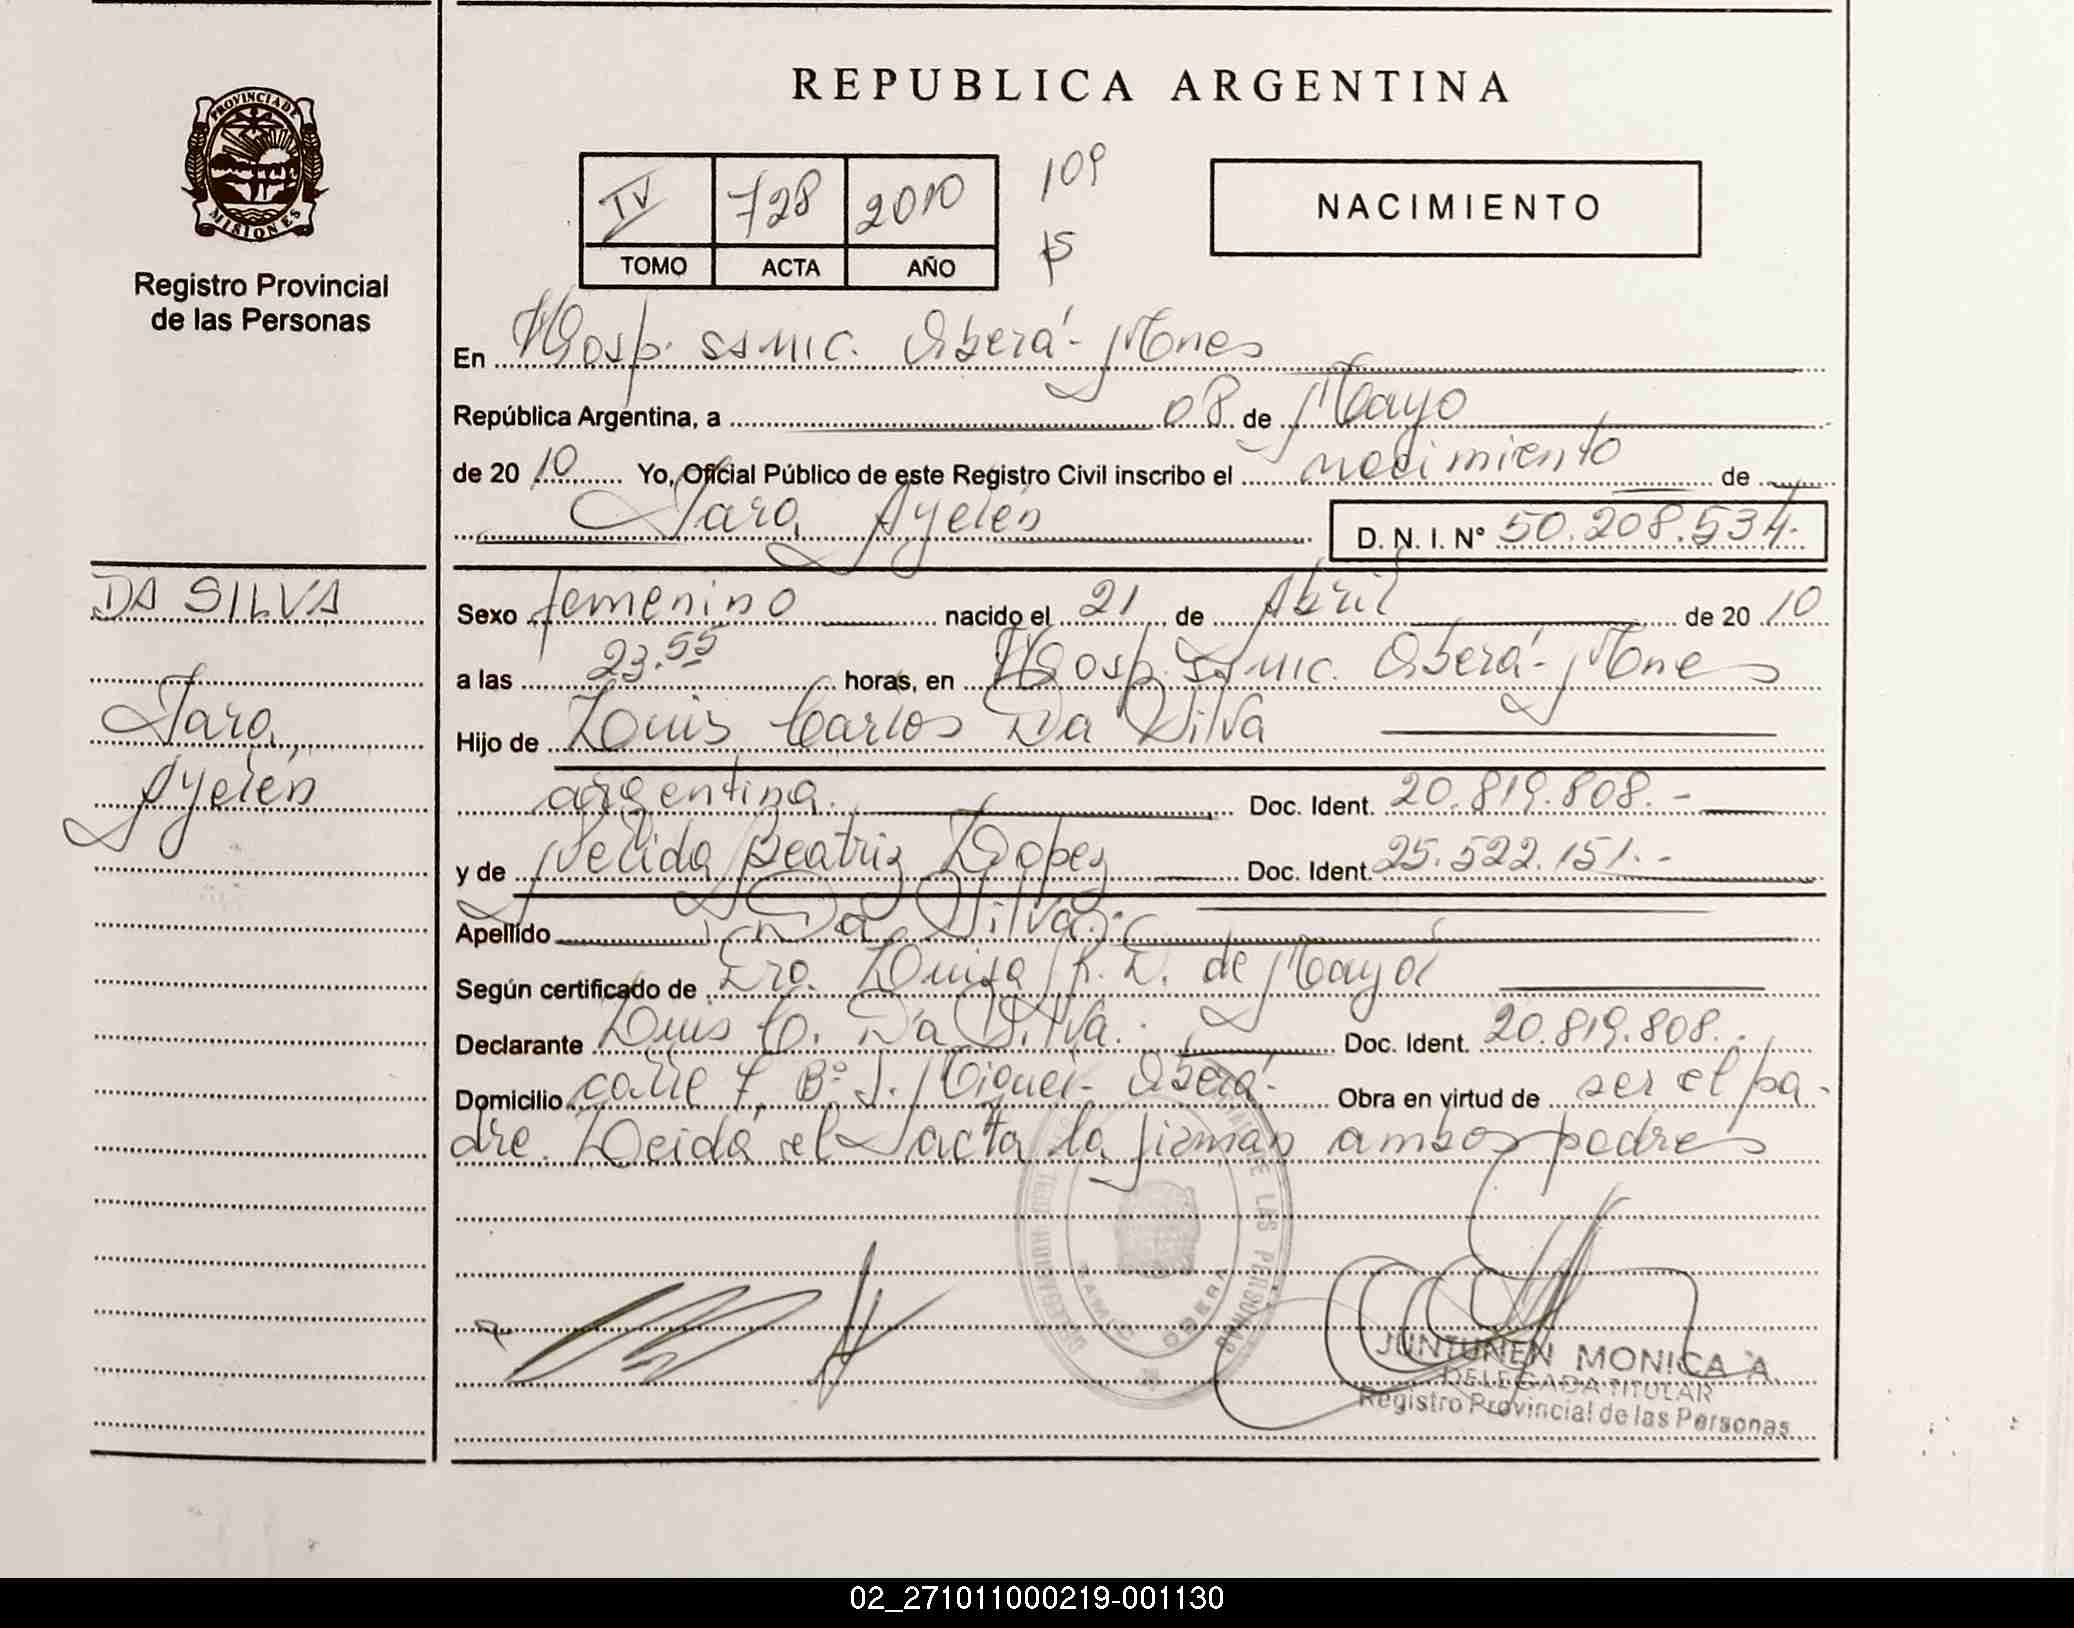 PROVINCIA DE
MISIONES
Registro Provincial
de las Personas
REPUBLICA ARGENTINA
IV 728 2010 109
TOMO ACTA AÑO
NACIMIENTO
En Hosp. SAMIC. Oberá- Mnes
República Argentina, a 08 de Mayo
de 20 10 Yo, Oficial Público de este Registro Civil inscribo el nacimiento de
Iara Ayelén D. N. I. N° 50.208.534.-
DA SILVA
Iara
Ayelén
Sexo femenino nacido el 21 de Abril de 20 10
a las 23.55 horas, en Hosp. SAMIC. Oberá- Mnes
Hijo de Luis Carlos Da Silva
argentina. Doc. Ident. 20.819.808.-
y de Nelida Beatriz Lopez Doc. Ident. 25.522.151.-
Apellido Da Silva.-
Según certificado de Dra. Luisa R. D. de Mayol
Declarante Luis C. Da Silva. Doc. Ident. 20.819.808.-
Domicilio calle 7 B° S. Miguel- Oberá- Obra en virtud de ser el pa-
dre. Leida el acta la firman ambos padres
JUNTUNEN MONICA A.
DELEGADA TITULAR
Registro Provincial de las Personas
02_271011000219-001130